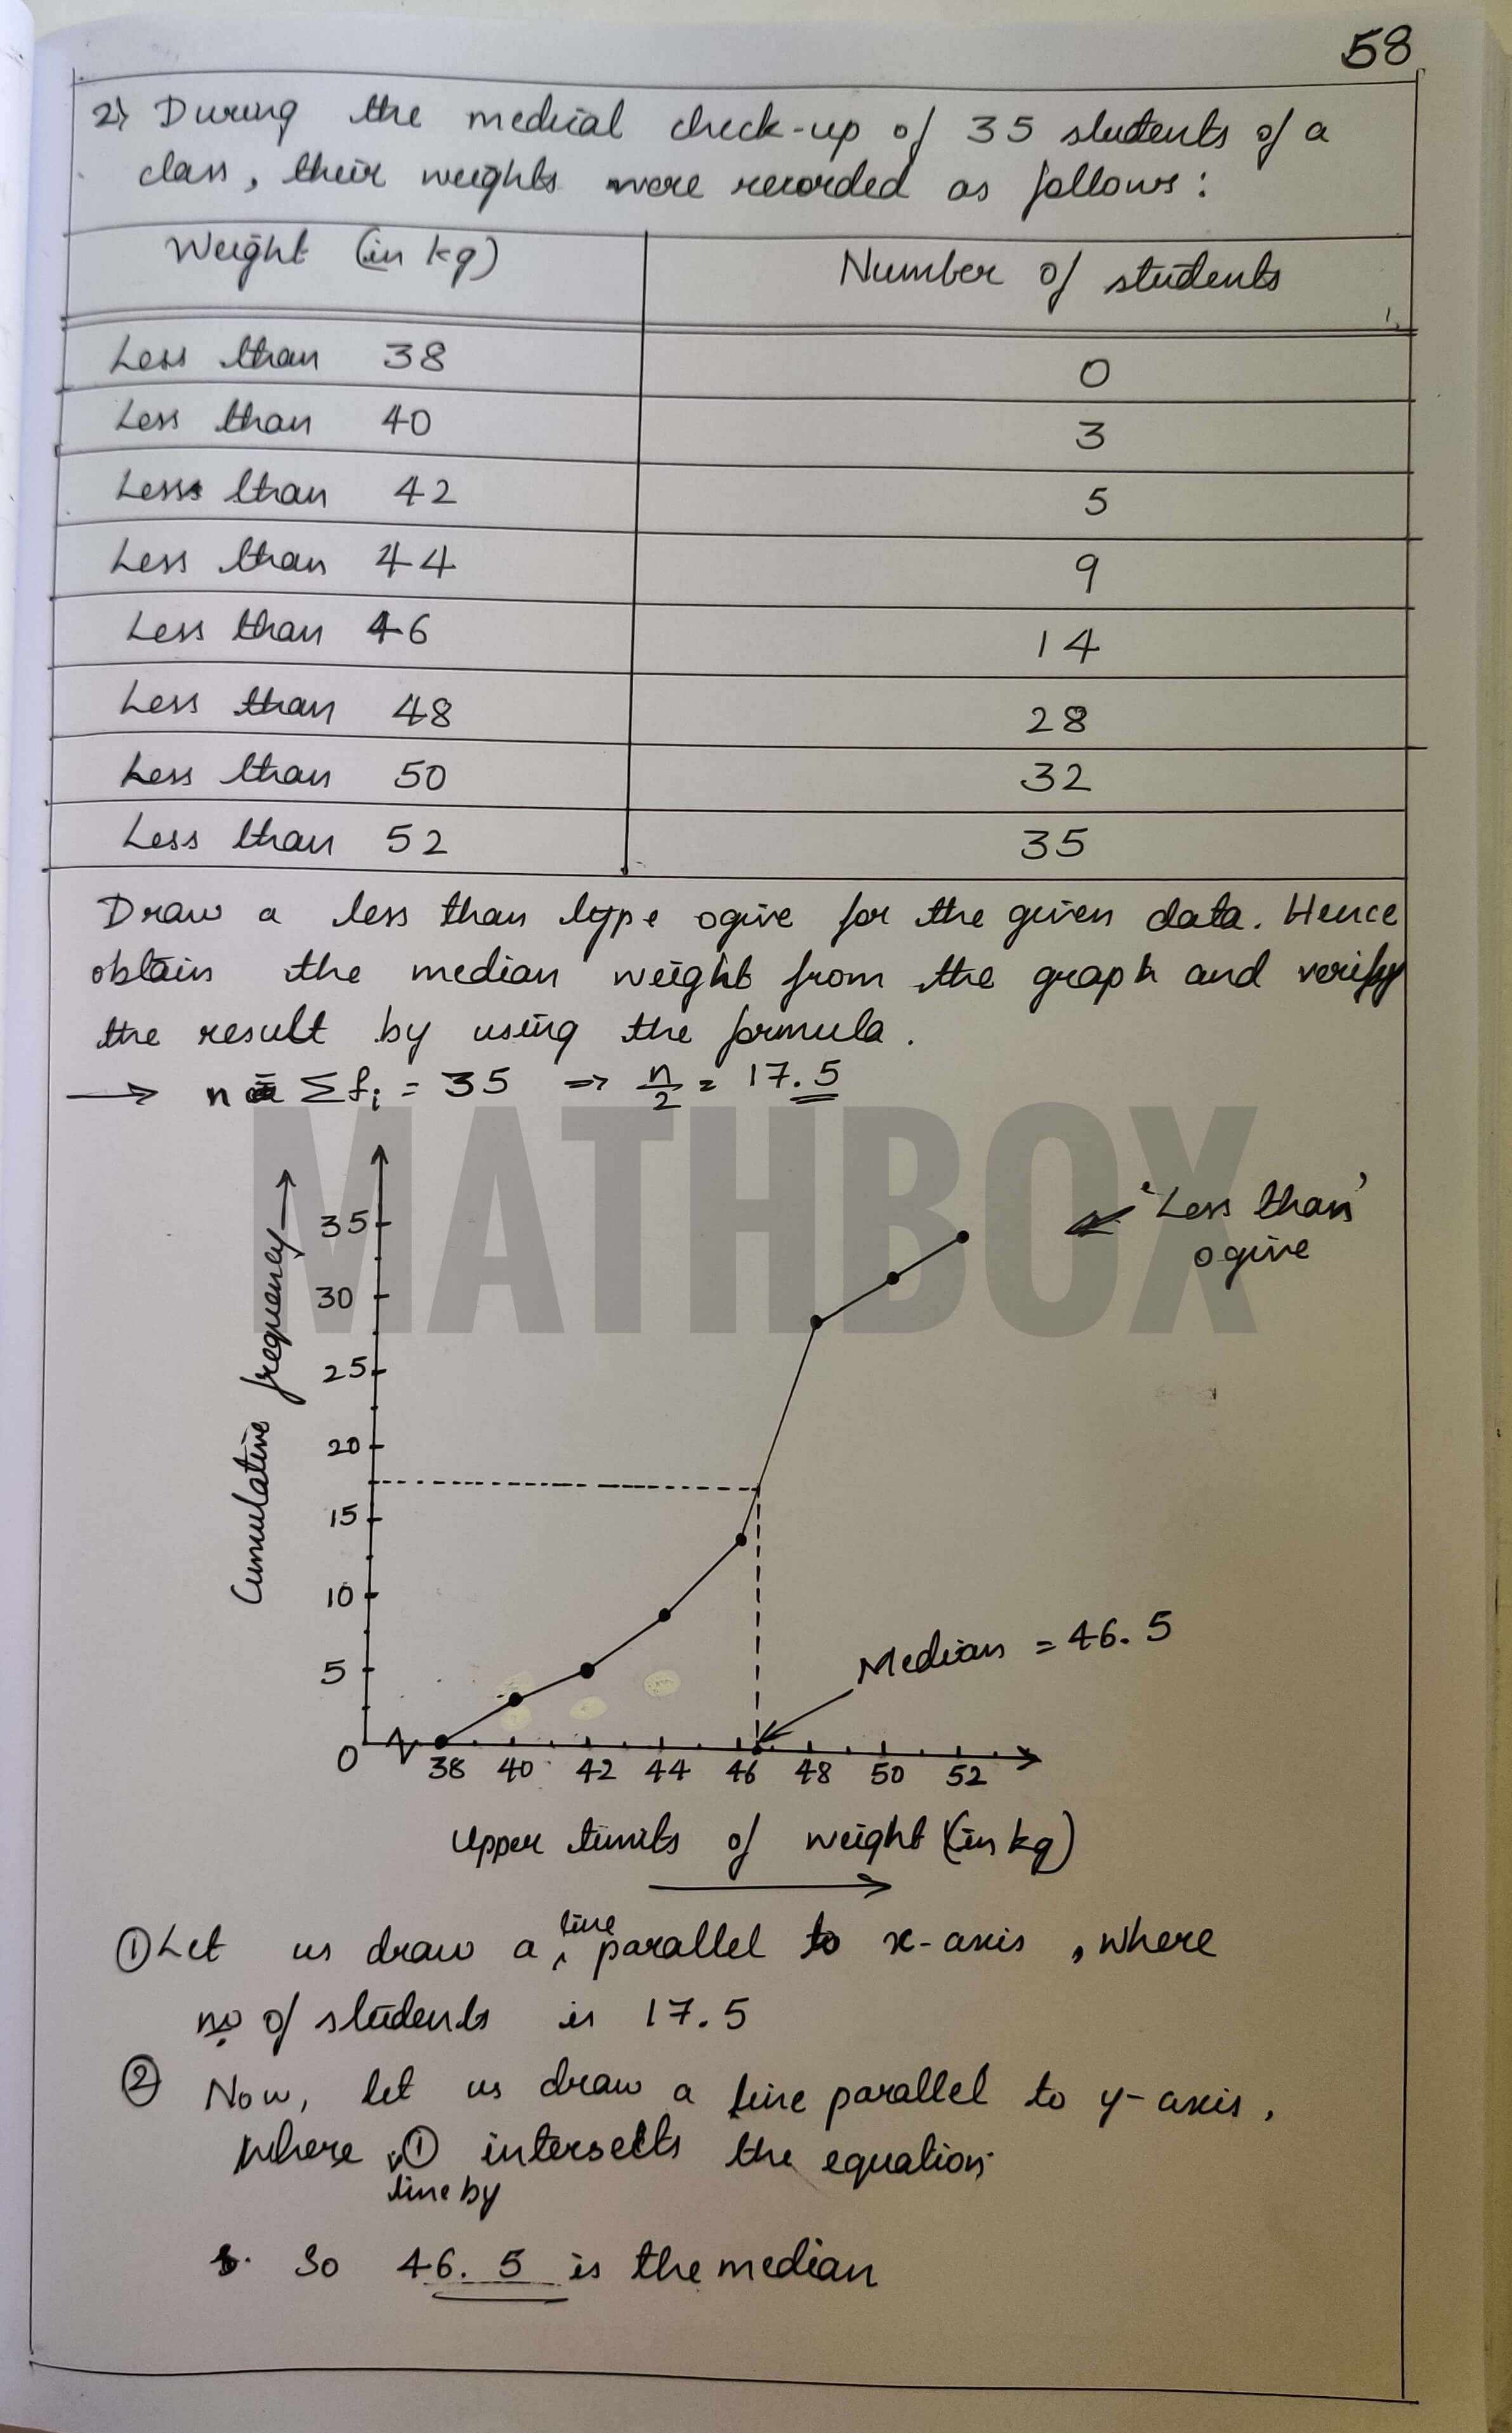 58
2) During the medical check-up of 35 students of a
class, their weights were recorded as follows:
Weight (in kg) Number of students
Less than 38 0
Less than 40 3
Less than 42 5
Less than 44 9
Less than 46 14
Less than 48 28
Less than 50 32
Less than 52 35
Draw a less than type ogive for the given data. Hence
obtain the median weight from the graph and verify
the result by using the formula.
→ n = Σfi = 35 ⇒ n/2 = 17.5
MATHBOX
'Less than'
ogive
Cumulative frequency →
35
30
25
20
15
10
5
0
Median = 46.5
38 40 42 44 46 48 50 52
Upper limits of weight (in kg)
① Let us draw a line parallel to x-axis, where
no of students is 17.5
② Now, let us draw a line parallel to y-axis,
where line by ① intersects the equation
So 46.5 is the median